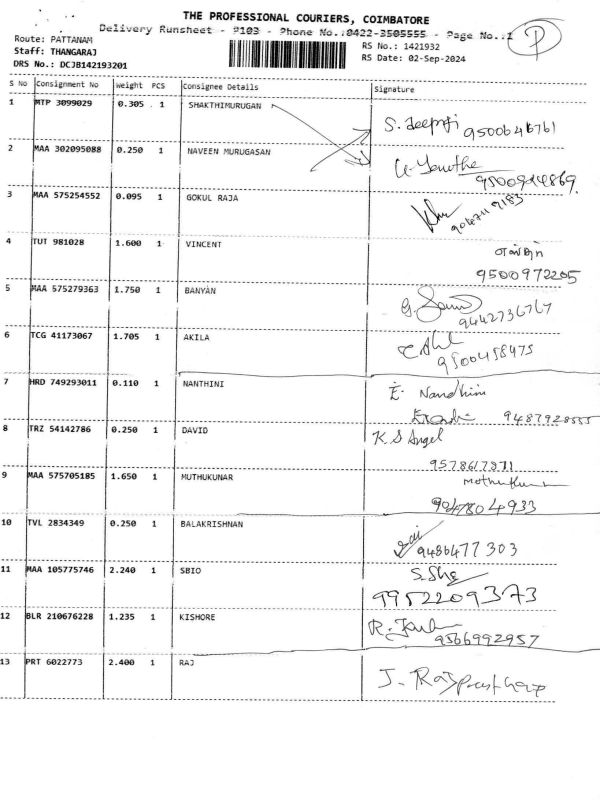 THE PROFESSIONAL COURIERS, COIMBATORE
Delivery Runsheet - P103 - Phone No.:0422-3505555 - Page No.:1
P
Route: PATTANAM
RS No.: 1421932
Staff: THANGARAJ
RS Date: 02-Sep-2024
DRS No.: DCJB142193201
S No Consignment No Weight PCS Consignee Details Signature
1 MTP 3099029 0.305 1 SHAKTHIMURUGAN
S. Deepaji 9500646761
2 MAA 302095088 0.250 1 NAVEEN MURUGASAN
9500914869
3 MAA 575254552 0.095 1 GOKUL RAJA
4 TUT 981028 1.600 1 VINCENT
9500972205
5 MAA 575279363 1.750 1 BANYAN
9442736767
6 TCG 41173067 1.705 1 AKILA
9500458475
7 HRD 749293011 0.110 1 NANTHINI
E. Nandhini
8 TRZ 54142786 0.250 1 DAVID
K S Angel
9578617871
9 MAA 575705185 1.650 1 MUTHUKUNAR
9047804933
10 TVL 2834349 0.250 1 BALAKRISHNAN
9486477303
11 MAA 105775746 2.240 1 SBIO
9952209373
12 BLR 210676228 1.235 1 KISHORE
9566992957
13 PRT 6022773 2.400 1 RAJ